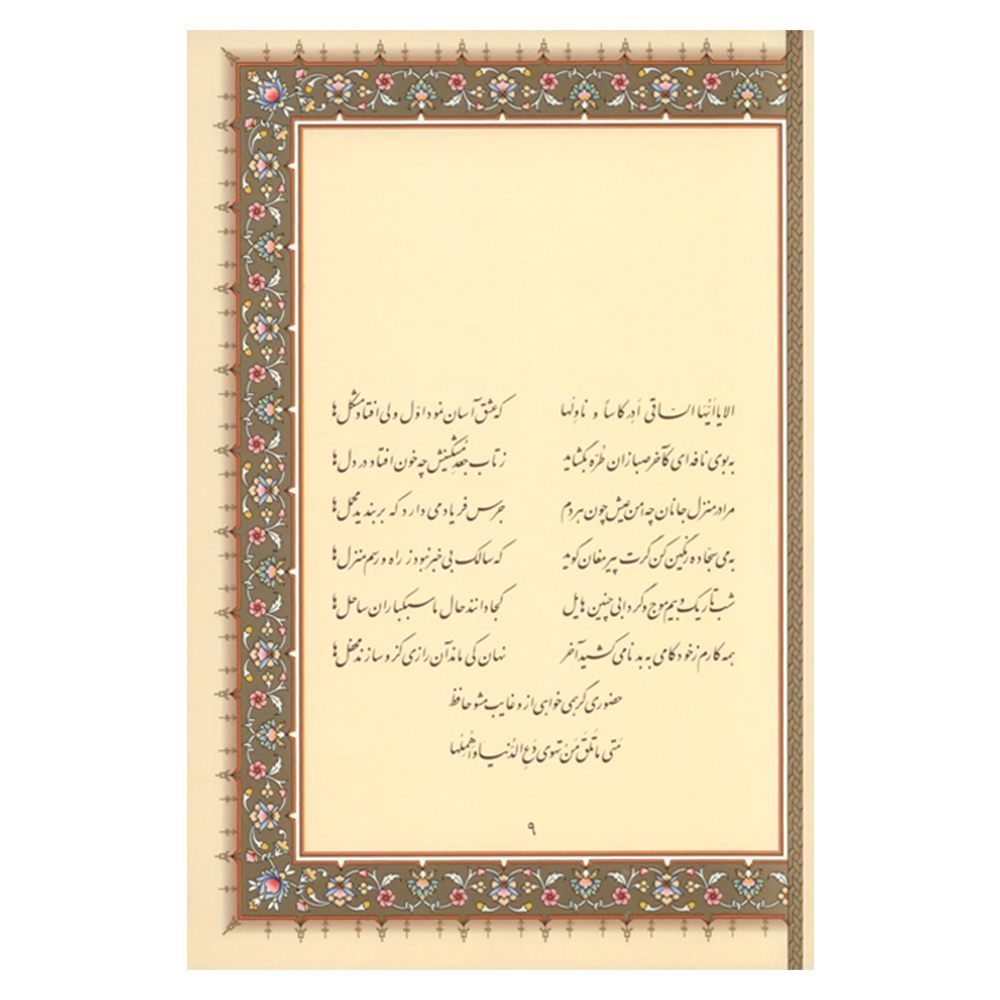 الا یا اَیُّها السّاقی اَدِر کاساً و ناوِلها که عشق آسان نمود اوّل ولی افتاد مشکل‌ها
به بوی نافه‌ای کآخر صبا زان طُرّه بگشاید ز تاب جَعدِ مُشکینش چه خون افتاد در دل‌ها
مرا در منزل جانان چه امن عیش چون هر دم جرس فریاد می‌دارد که بربندید محمل‌ها
به می سجّاده رنگین کن گرت پیر مغان گوید که سالک بی‌خبر نبود ز راه و رسم منزل‌ها
شب تاریک و بیم موج و گردابی چنین هایل کجا دانند حال ما سبکباران ساحل‌ها
همه کارم ز خودکامی به بدنامی کشید آخر نهان کی ماند آن رازی کزو سازند محفل‌ها
حضوری گر همی خواهی ازو غایب مشو حافظ
مَتی ما تَلقَ مَنْ تهوی دَعِ الدُّنیا و اَهْمِلْها
۹